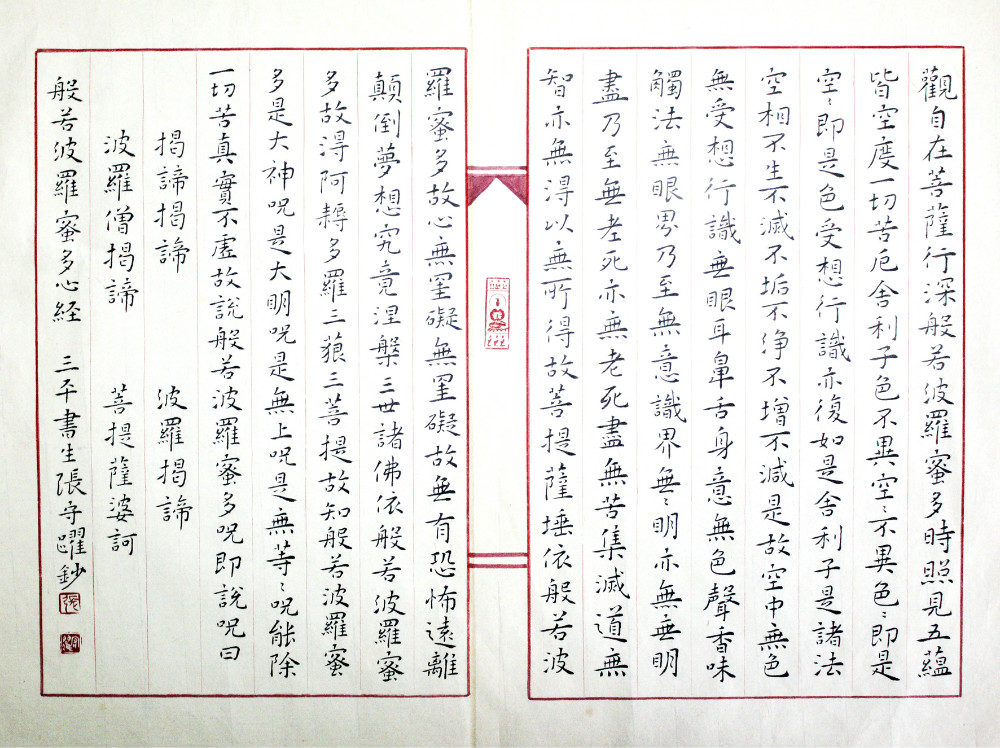 觀自在菩薩行深般若波羅蜜多時照見五蘊
皆空度一切苦厄舍利子色不異空〻不異色〻即是
空〻即是色受想行識亦復如是舍利子是諸法
空相不生不滅不垢不淨不增不減是故空中無色
無受想行識無眼耳鼻舌身意無色聲香味
觸法無眼界乃至無意識界無〻明亦無無明
盡乃至無老死亦無老死盡無苦集滅道無
智亦無得以無所得故菩提薩埵依般若波
羅蜜多故心無罣礙無罣礙故無有恐怖遠離
顛倒夢想究竟涅槃三世諸佛依般若波羅蜜
多故得阿耨多羅三藐三菩提故知般若波羅蜜
多是大神呪是大明呪是無上呪是無等〻呪能除
一切苦真實不虛故說般若波羅蜜多呪即說呪曰
揭諦揭諦 波羅揭諦
波羅僧揭諦 菩提薩婆訶
般若波羅蜜多心経 三平書生張守躍鈔